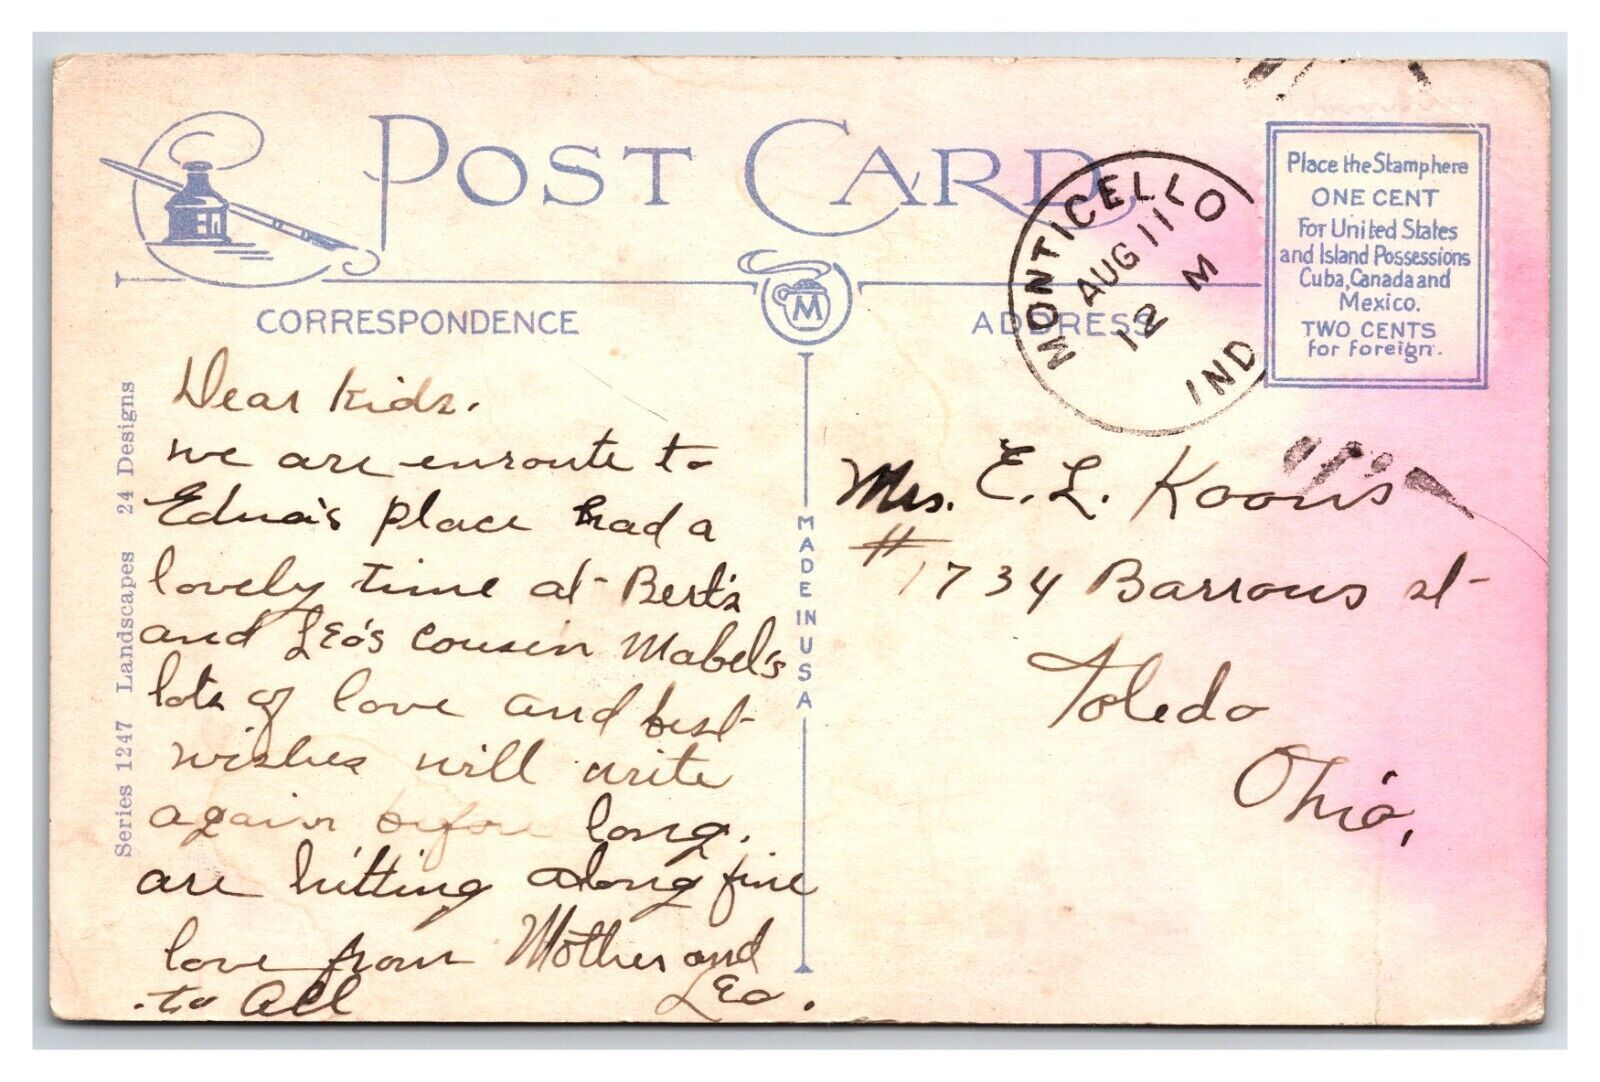 POST CARD
CORRESPONDENCE
M
ADDRESS
MONTICELLO
AUG 11
12 M
IND
Place the Stamp here
ONE CENT
For United States
and Island Possessions
Cuba, Canada and
Mexico.
TWO CENTS
for foreign.
Series 1247 Landscapes 24 Designs
MADE IN USA
Dear Kids.
we are enroute to
Edna's place had a
lovely time at Bert's
and Leo's cousin Mabel's
lots of love and best
wishes will write
again before long.
are hitting along fine
love from Mother and
to all Leo.
Mrs. E. L. Koons
# 1734 Barrows st
Toledo
Ohio,